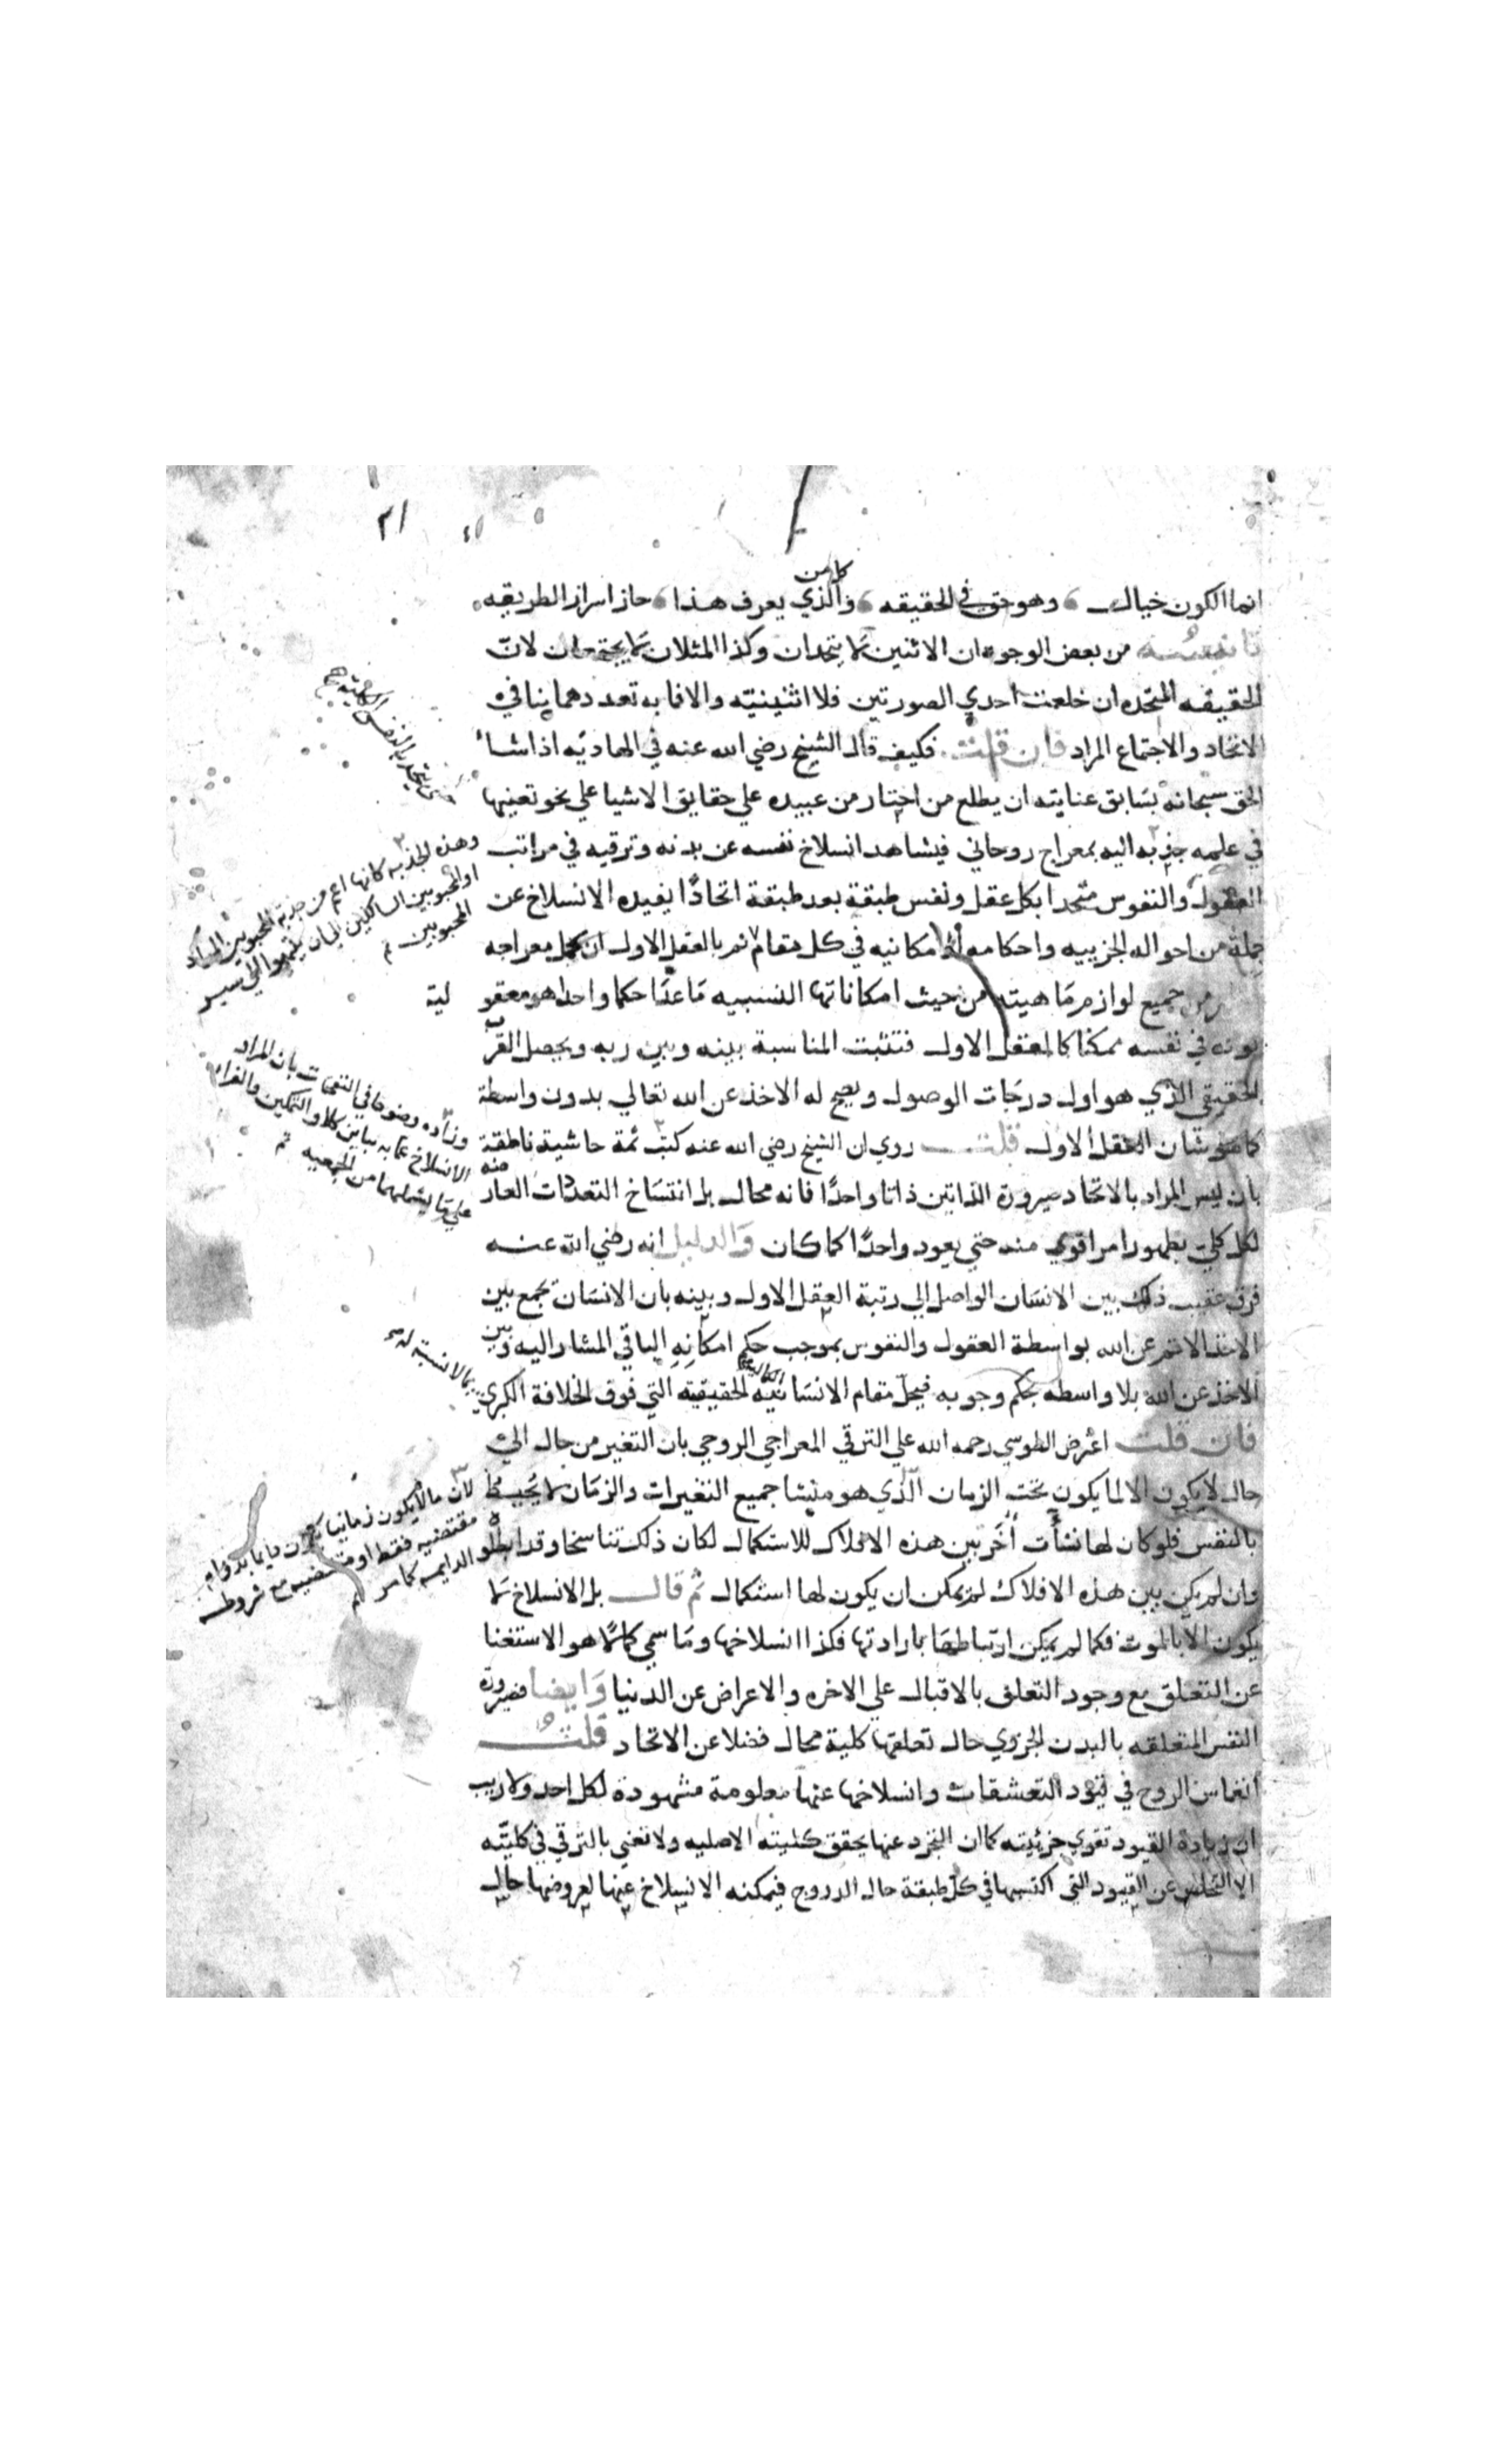 ٢١
كل من
انما الكون خيال وهو حق في الحقيقه والذي يعرف هذا حاز اسرار الطريقه
من بعض الوجوه ان الاثنين لا يتحدان وكذا المثلان لا يجتمعان لان
الحقيقه المتحده ان خلعت احدي الصورتين فلا اثنينيته والا فما به تعددهما ينافي
الاتحاد والاجتماع المراد فان قلت فكيف قال الشيخ رضي الله عنه في الهاديه اذا شا
الحق سبحانه بسابق عنايته ان يطلع من اختار من عبيده علي حقايق الاشيا علي نحو تعينها
في علمه جذبه اليه بمعراج روحاني فيشاهد انسلاخ نفسه عن بدنه وترقيه في مراتب
العقول والنفوس متحدا بكل عقل ونفس طبقة بعد طبقة اتحادًا يفيده الانسلاخ عن
جملة من احواله الجزييه واحكامه الامكانيه في كل مقام ثم بالعقل الاول ان كمل معراجه
جميع لوازم ماهيته من حيث امكاناتها النسبيه ما عدا حكما واحدا هو معقو لية
كونه في نفسه ممكنا كالعقل الاول فتثبت المناسبة بينه وبين ربه ويحصل القرب
الحقيقي الذي هو اول درجات الوصول ويصح له الاخذ عن الله تعالي بدون واسطة
كما هو شان العقل الاول قلت روي ان الشيخ رضي الله عنه كتب ثمة حاشية ناطقة منه
بان ليس المراد بالاتحاد صيرورة الذاتين ذاتا واحدًا فانه محال بل انتساخ التعددات العار
لكل كلي بظهور امر اقوي منه حتي يعود واحدًا كما كان والدليل انه رضي الله عنه
فرق عقيب ذلك بين الانسان الواصل الي رتبة العقل الاول وبينه بان الانسان يجمع بين
الاخذ الاتم عن الله بواسطة العقول والنفوس بموجب حكم امكانه الباقي المشار اليه وبين
الاخذ عن الله بلا واسطه بحكم وجوبه فيحل مقام الانسانيه الحقيقيه التي فوق الخلافة الكبري
فان قلت اعترض الطوسي رحمه الله علي الترقي المعراجي الروحي بان التغير من حال الي
حال لا يكون الا لما يكون تحت الزمان الذي هو منشا جميع التغيرات والزمان لا يحيط
بالنفس فلو كان لها نشأت أخر بين هذه الافلاك للاستكمال لكان ذلك تناسخا وقد ابطلوه
وان لم يكن بين هذه الافلاك لم يمكن ان يكون لها استكمال ثم قال بل الانسلاخ لا
يكون الا بالموت فكما لم يكن ارتباطها بارادتها فكذا انسلاخها وما سمي كمالا هو الاستغنا
عن التعلق مع وجود التعلق بالاقبال علي الاخره والاعراض عن الدنيا وايضا فصيرورة
النفس المتعلقه بالبدن الجزوي حال تعلقها كلية محال فضلا عن الاتحاد قلت
انغماس الروح في قيود التعشقات وانسلاخها عنها معلومة مشهودة لكل احد ولا ريب
ان زيادة القيود تقوي جزئيته كما ان التجرد عنها يحقق كليته الاصليه ولا نعني بالترقي في كليته
الا التخلص عن القيود التي اكتسبها في كل طبقة حال الدروج فيمكنه الانسلاخ عنها لعروضها حال
وهذه الجذبه كانها اعم من جذبة المحبوبين
او المحبوبين السالكين
المحبوبين
وزاده وضوحا في النفحات بان المراد
الانسلاخ عما به يباين كلا والتمكين والفراد
علي ما يشملهما من الجمعيه
بالانسبة له
لان ما لا يكون زمانيا يكون دايما بدوام
مقتضيه فقط او مقتضيه مع شروطه
الدايمه كما مر